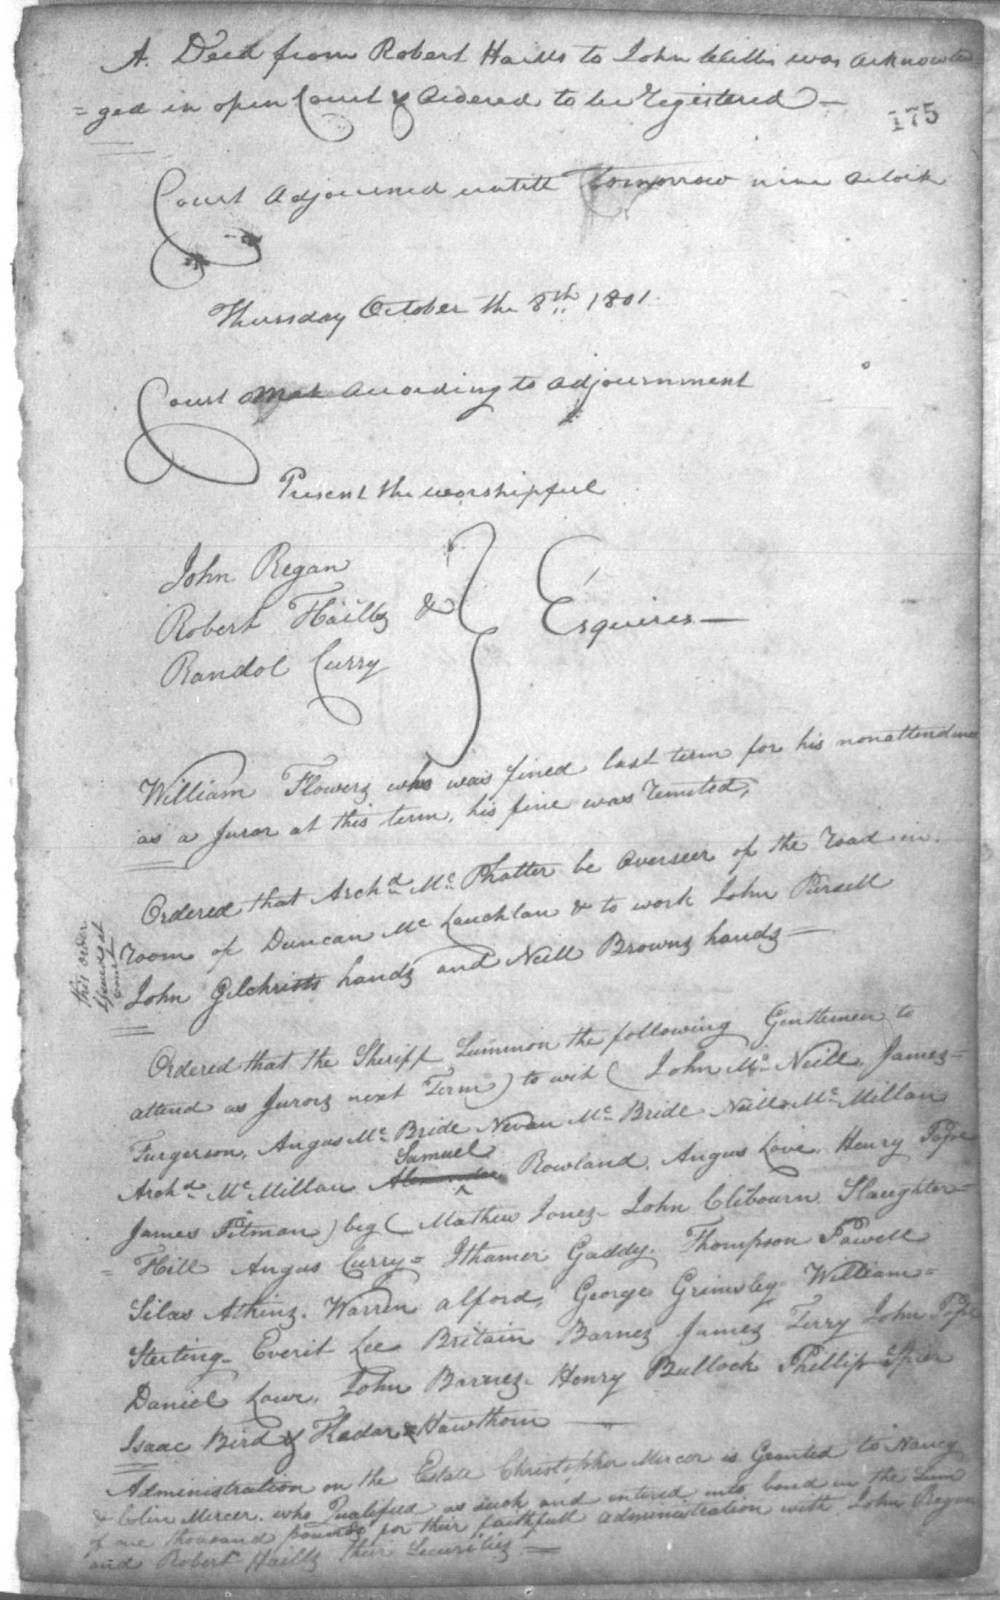 A. Deed from Robert Hails to John Willis was acknowled
=ged in open Court & Ordered to be Registered —
175
Court Adjourned untill Tomorrow nine Oclock
Thursday October the 8th 1801.
Court Met According to Adjournment
Present the worshipfull
John Regan
Robert Hailes &
Randol Curry
Esquires —
William Flowers who was fined last term for his nonattendance
as a Juror at this term, his fine was remited,
Ordered that Archd. Mc. Phatter be Overseer of the Road in
room of Duncan Mc Lauchlan & to work John Pursell
John Gilchrists hands and Neill Browns hands —
this order
Issued at
Court
Ordered that the Sheriff Summon the following Gentlemen to
attend as Jurors next Term) to wit ( John Mc. Neill, James
Furgerson, Angus Mc. Bride Nevan Mc. Bride Neill Mc. Millan
Samuel
Archd. Mc. Millan Rowland, Angus Love, Henry Pope
James Pitman) beg ( Mathew Jones John Clibourn Slaughter=
= Hill Angus Curry = Ithamer Gaddy. Thompson Powell
Silas Atkins. Warren Alford, George Grimsley William=
Sterling Everit Lee Britain Barnes James Terry John Pope
Daniel Lowe, John Barnes Henry Bullock Phillip Spier
Isaac Bird & Hadar Hawthorn —
Administration on the Estate Christopher Mercer is Granted to Nancy
& Mercer. who Qualified as such and entered into bond in the Sum
of one thousand pounds for their faithfull administration with John Regan
and Robert Hailes their Securities —